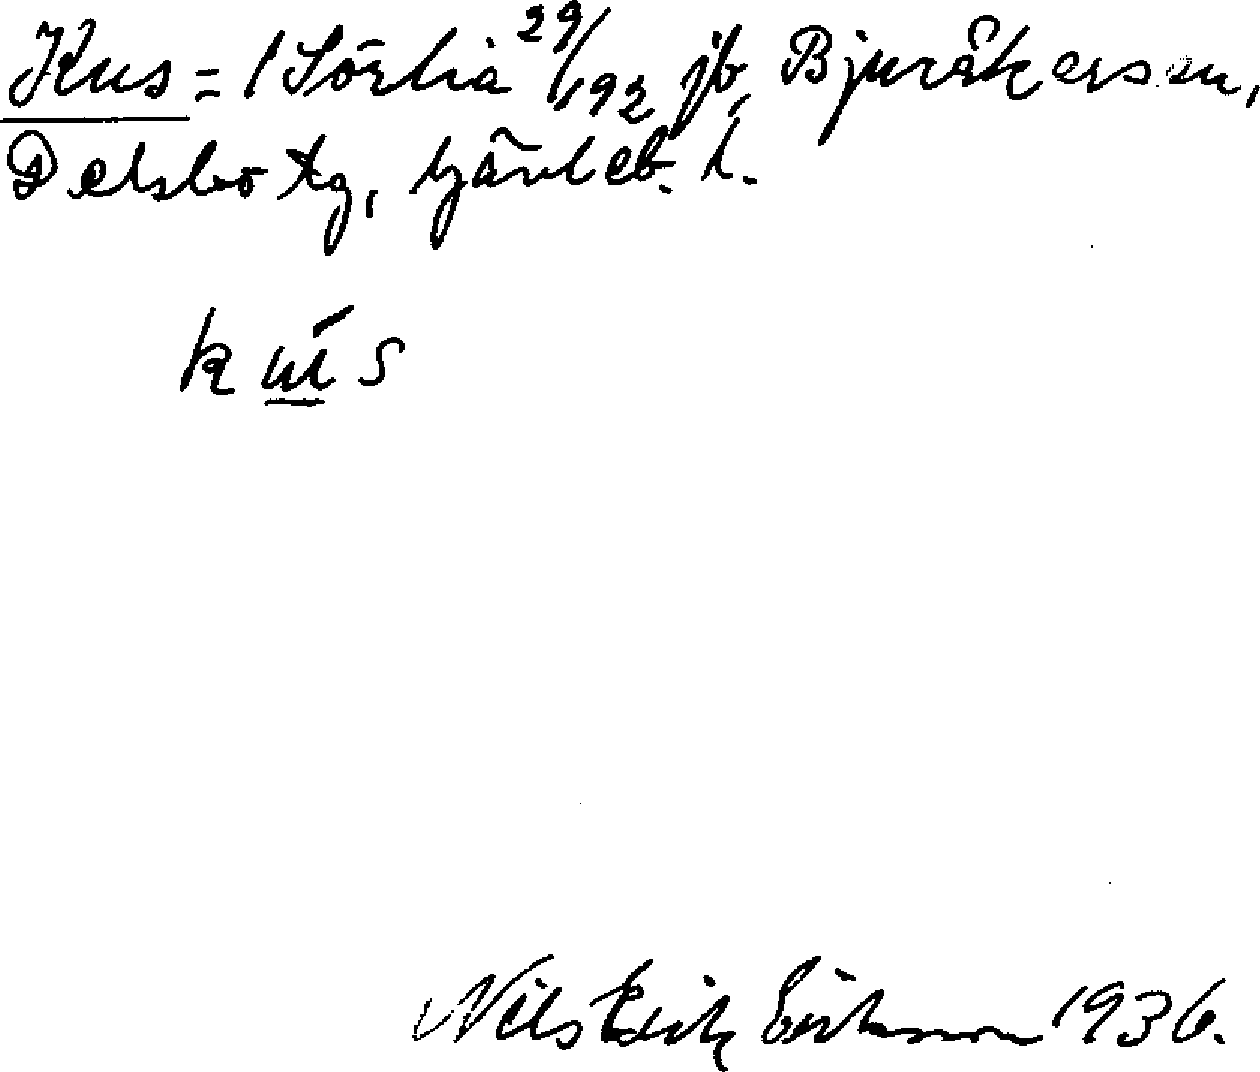 Kus = 1 Sörlia 29/192 jb, Bjuråkers sn,
Delsbo tg, Gävleb. l.
kus
Nils Erik Eriksson 1936.